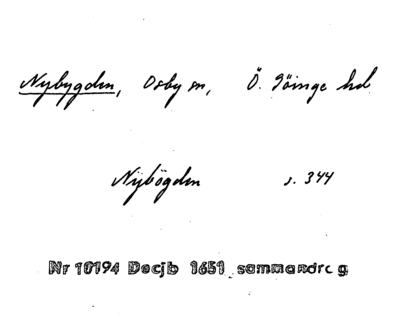 Nybygden, Osby sn, Ö. Göinge hd
Nÿbögden s. 344
Nr 10194 Decjb 1651 sammandrag